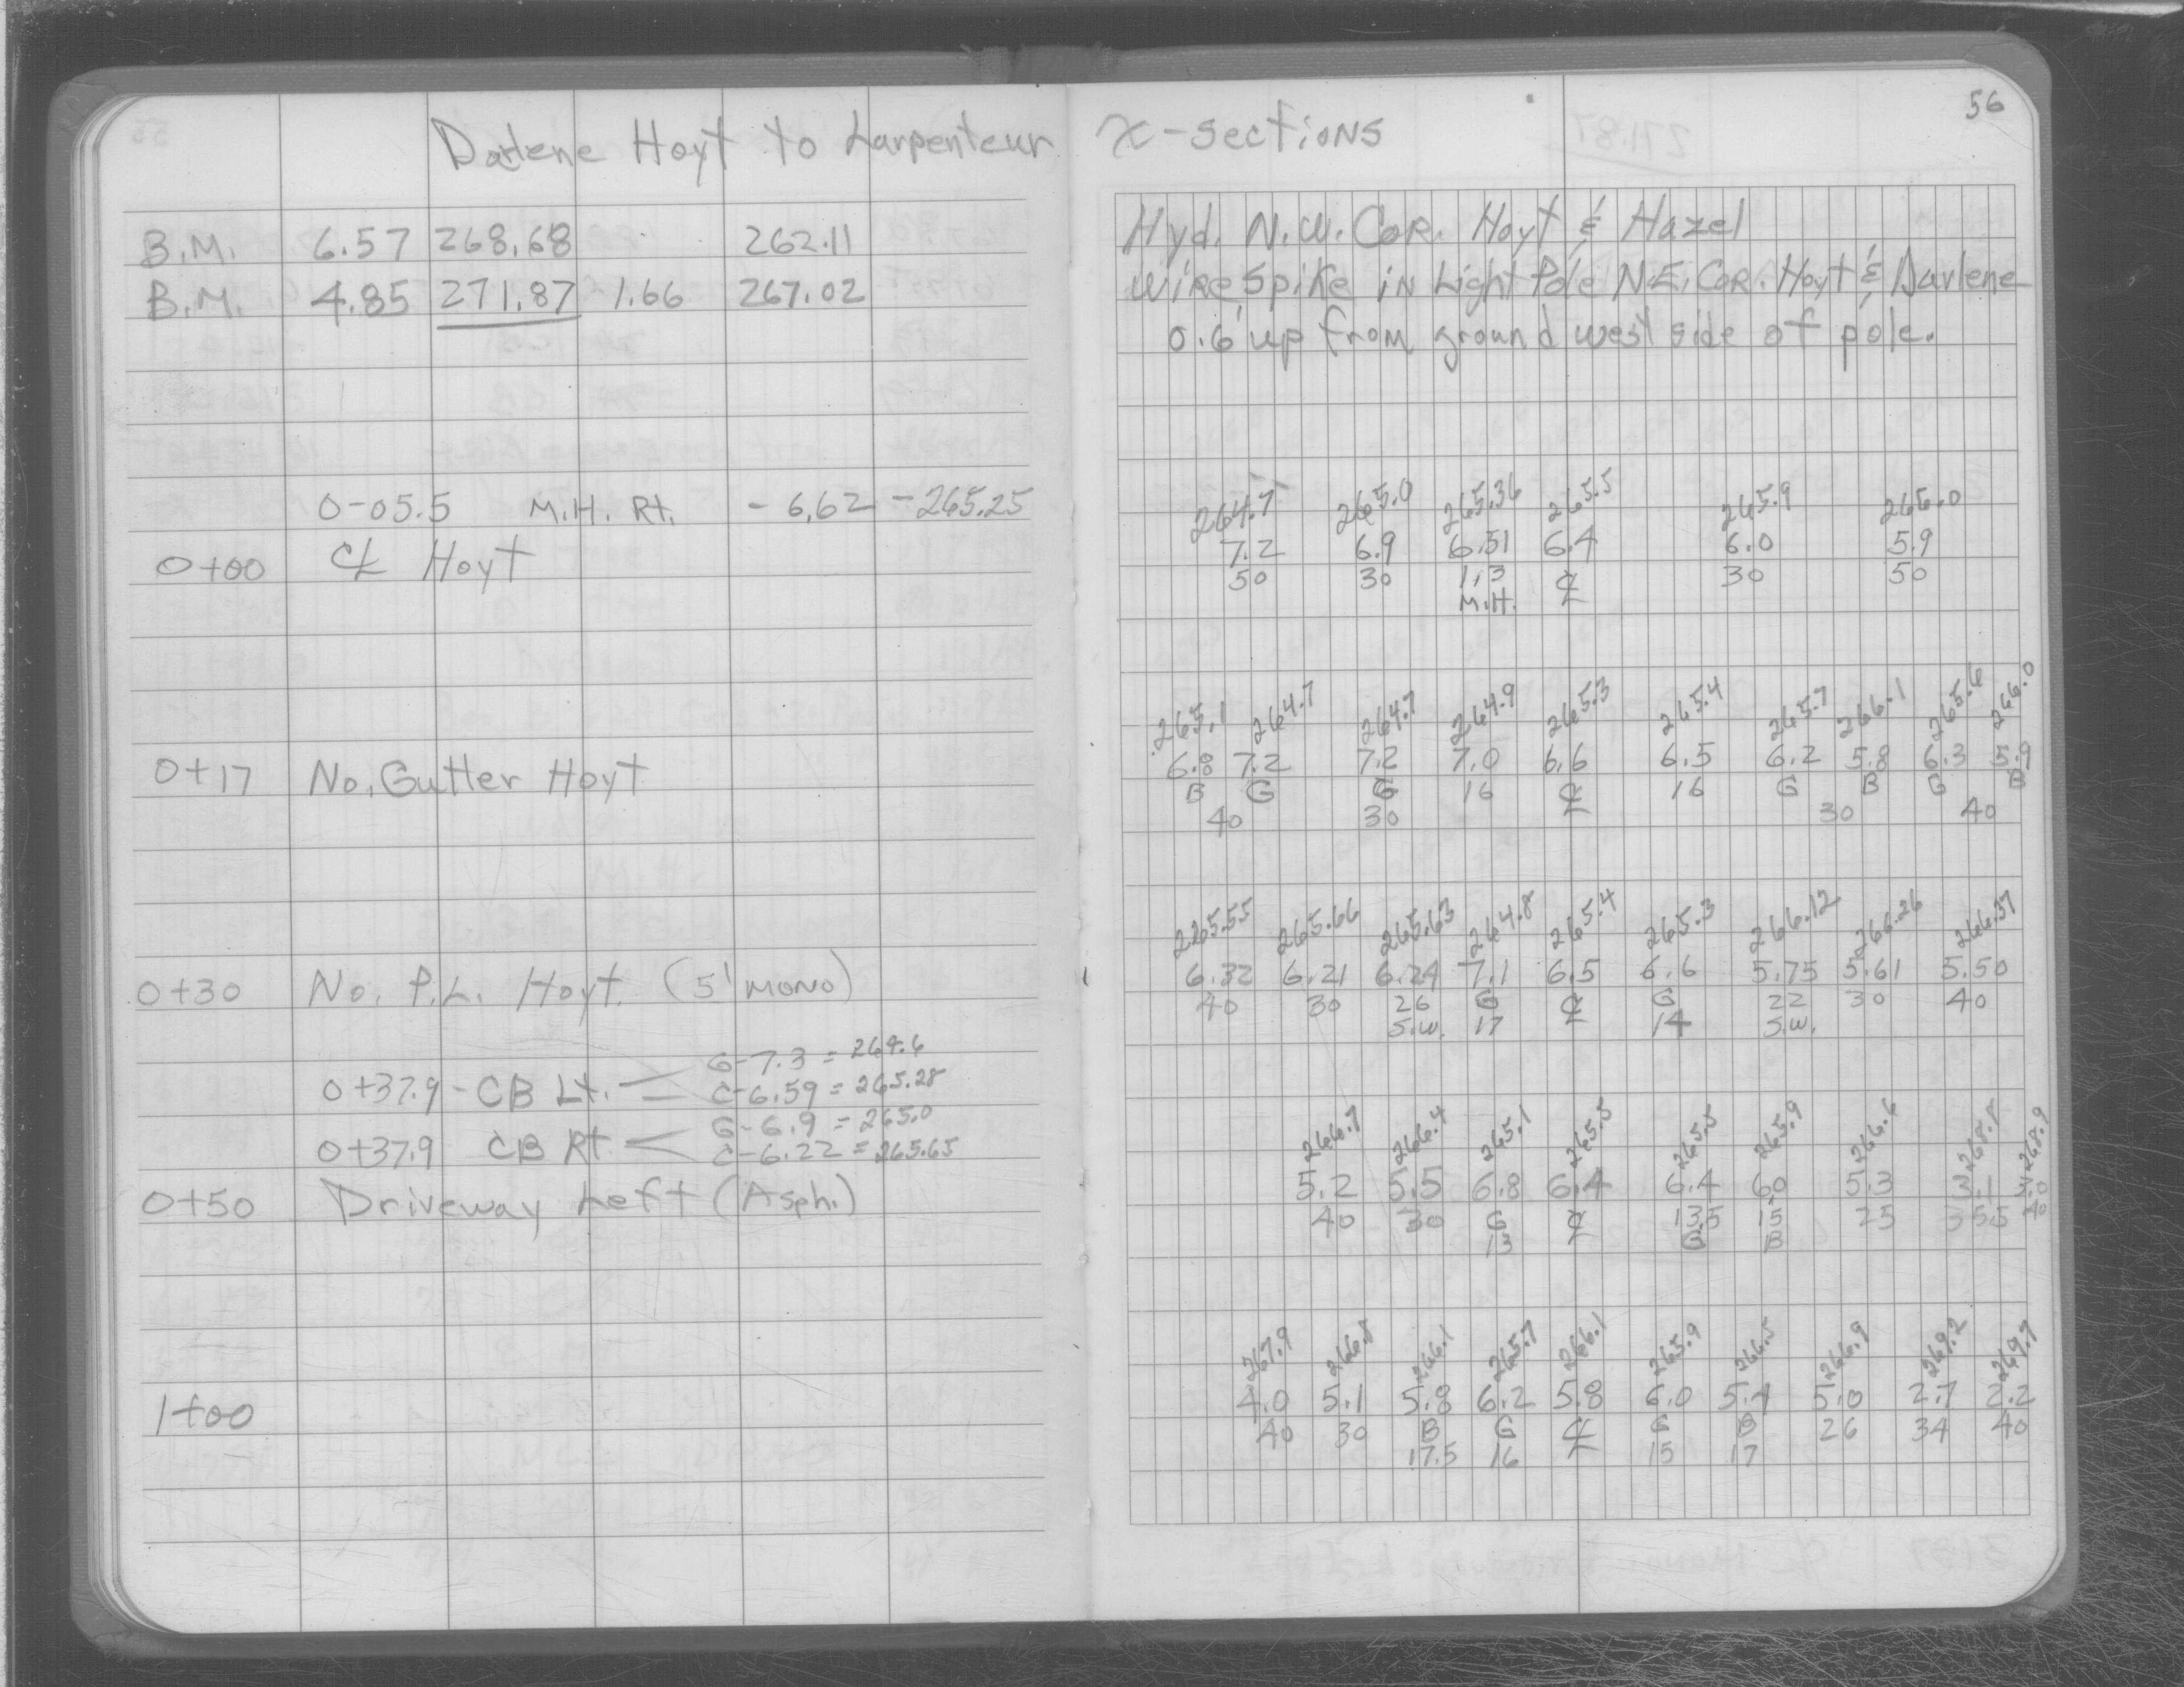 56
Darlene Hoyt to Larpenteur X-sections
B.M. 6.57 268.68 262.11 Hyd. N.W. Cor. Hoyt & Hazel
B.M. 4.85 271.87 1.66 267.02 Wire Spike in Light Pole N.E. Cor. Hoyt & Darlene
0.6' up from ground west side of pole.
0-05.5 M.H. Rt. - 6.62 - 265.25
264.7 265.0 265.36 265.5 265.9 266.0
7.2 6.9 6.51 6.4 6.0 5.9
0+00 ℄ Hoyt
50 30 1.3 ℄ 30 50
M.H.
265.1 264.7 264.7 264.9 265.3 265.4 265.7 266.1 265.6 266.0
0+17 No. Gutter Hoyt
6.8 7.2 7.2 7.0 6.6 6.5 6.2 5.8 6.3 5.9
B G G 16 ℄ 16 G B G B
40 30 30 40
265.55 265.66 265.63 264.8 265.4 265.3 266.12 266.26 266.37
0+30 No. P.L. Hoyt. (5' mono)
6.32 6.21 6.24 7.1 6.5 6.6 5.75 5.61 5.50
40 30 26 G ℄ G 22 30 40
S.W. 17 14 S.W.
G-7.3 = 264.6
0+37.9 - CB Lt.
C-6.59 = 265.28
G-6.9 = 265.0
0+37.9 CB Rt.
C-6.22 = 265.65
266.7 266.4 265.1 265.5 265.5 265.9 266.6 268.8 268.9
5.2 5.5 6.8 6.4 6.4 6.0 5.3 3.1 3.0
0+50 Driveway Left (Asph.)
40 30 G ℄ 13.5 15 25 35.5 40
13 G B
267.9 266.8 266.1 265.7 266.1 265.9 266.5 266.9 269.2 269.7
1+00
4.0 5.1 5.8 6.2 5.8 6.0 5.4 5.0 2.7 2.2
40 30 B G ℄ G B 26 34 40
17.5 16 15 17